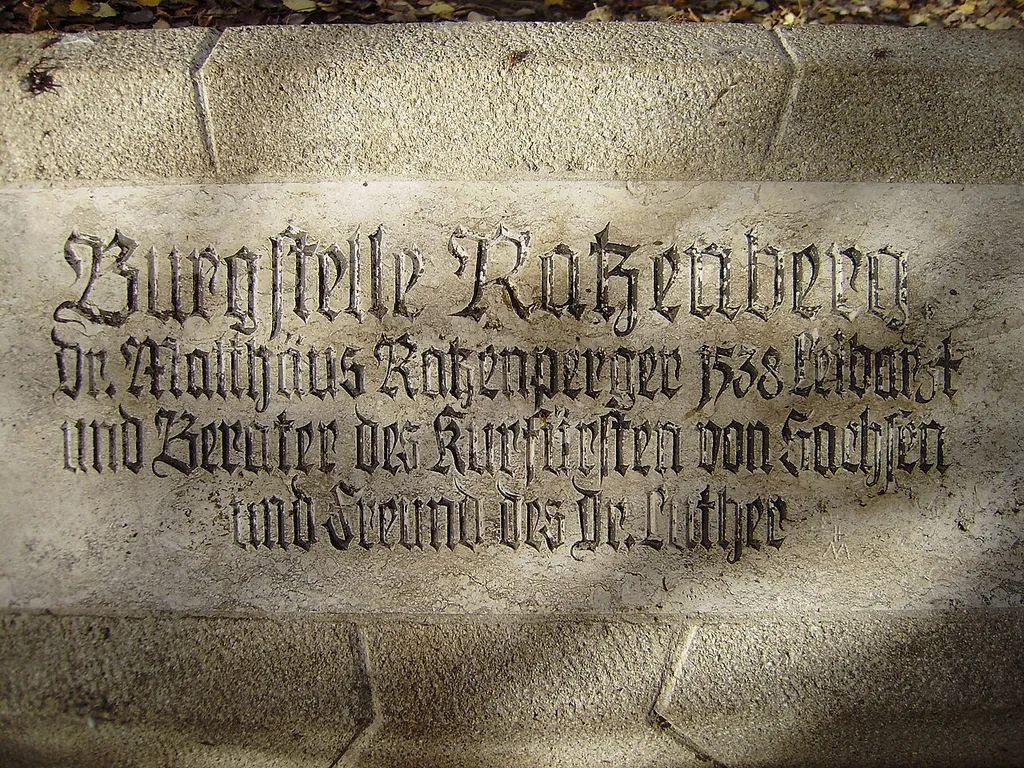 Burgstelle Ratzenberg
Dr. Matthäus Ratzenperger 1538 Leibarzt
und Berater des Kurfürsten von Sachsen
und Freund des Dr. Luther